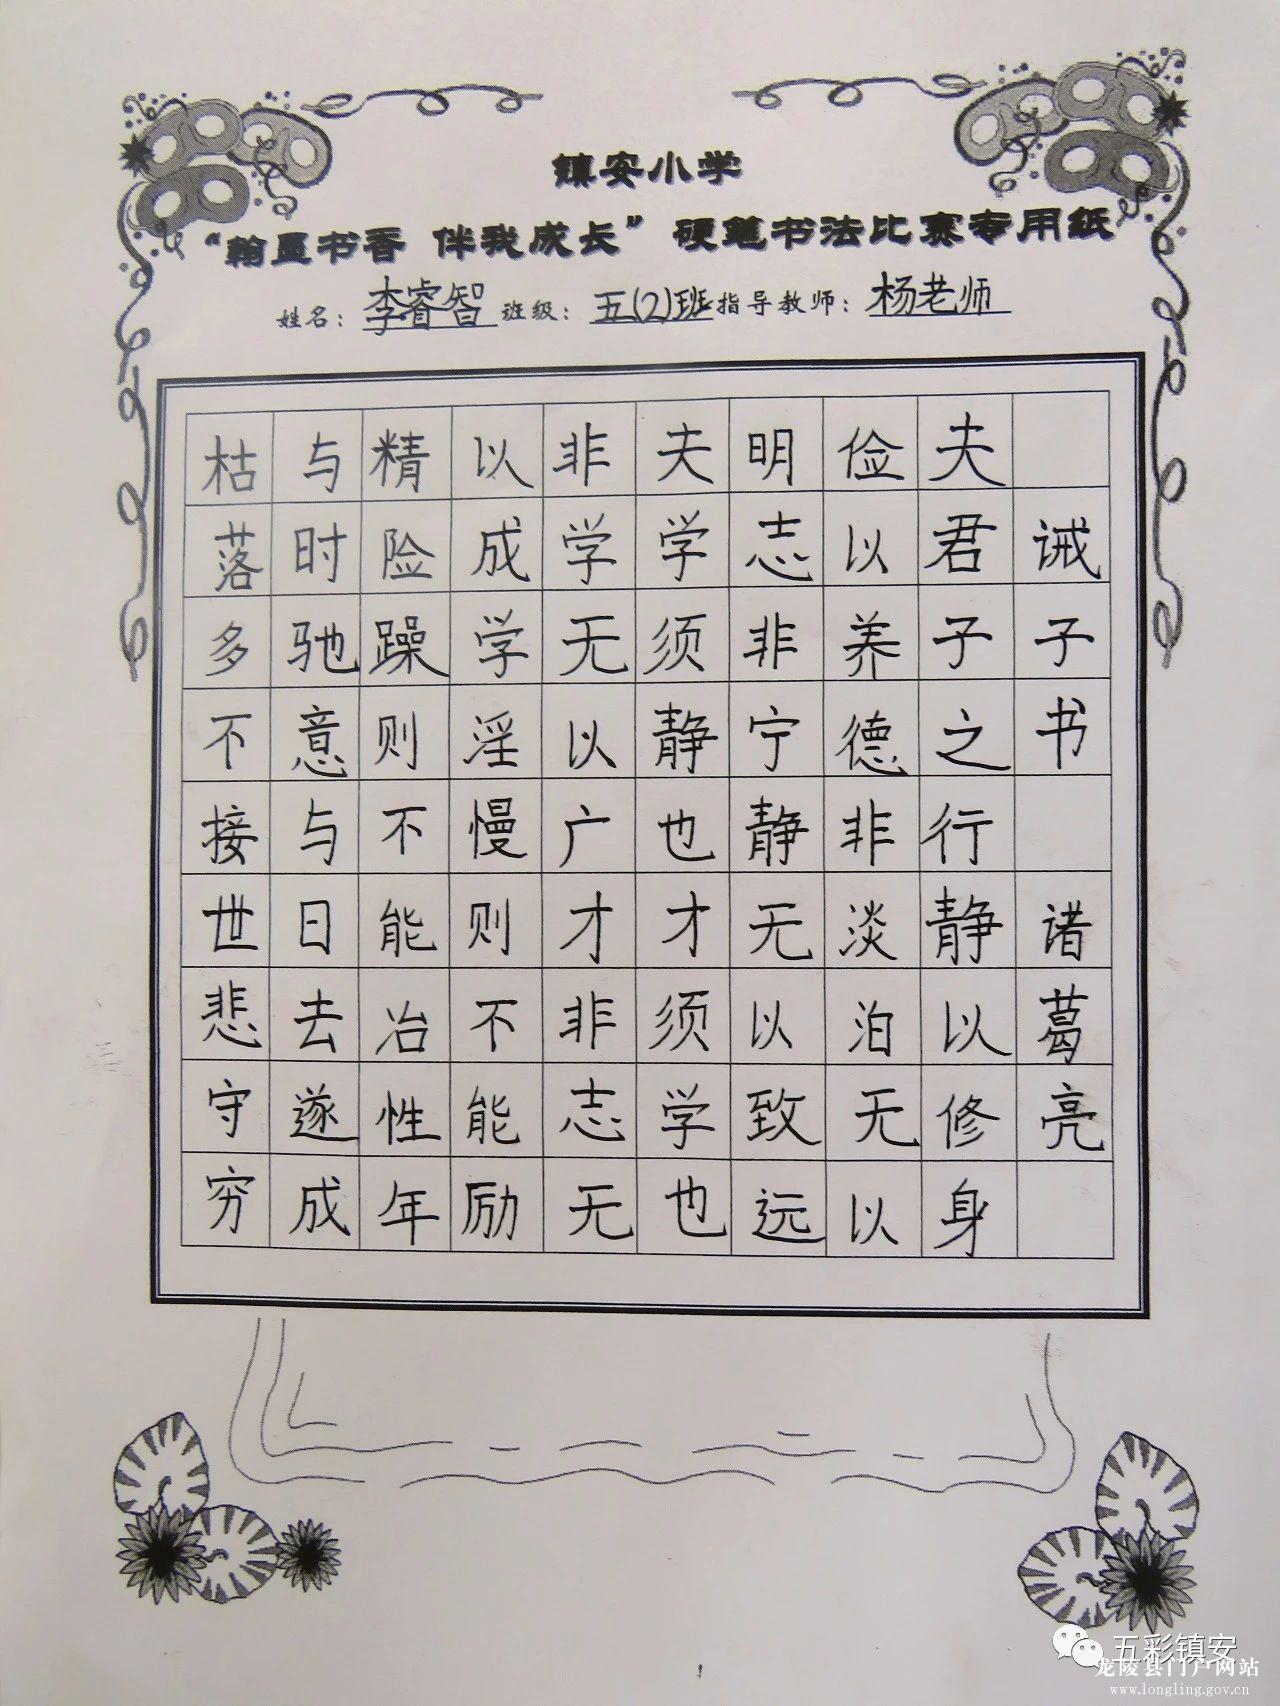 镇安小学
“翰墨书香 伴我成长”硬笔书法比赛专用纸
姓名：李睿智 班级：五(2)班 指导教师：杨老师
诫子书 诸葛亮
夫君子之行静以修身
俭以养德非淡泊无以
明志非宁静无以致远
夫学须静也才须学也
非学无以广才非志无
以成学淫慢则不能励
精险躁则不能冶性年
与时驰意与日去遂成
枯落多不接世悲守穷
1
五彩镇安
龙陵县门户网站
www.longling.gov.cn